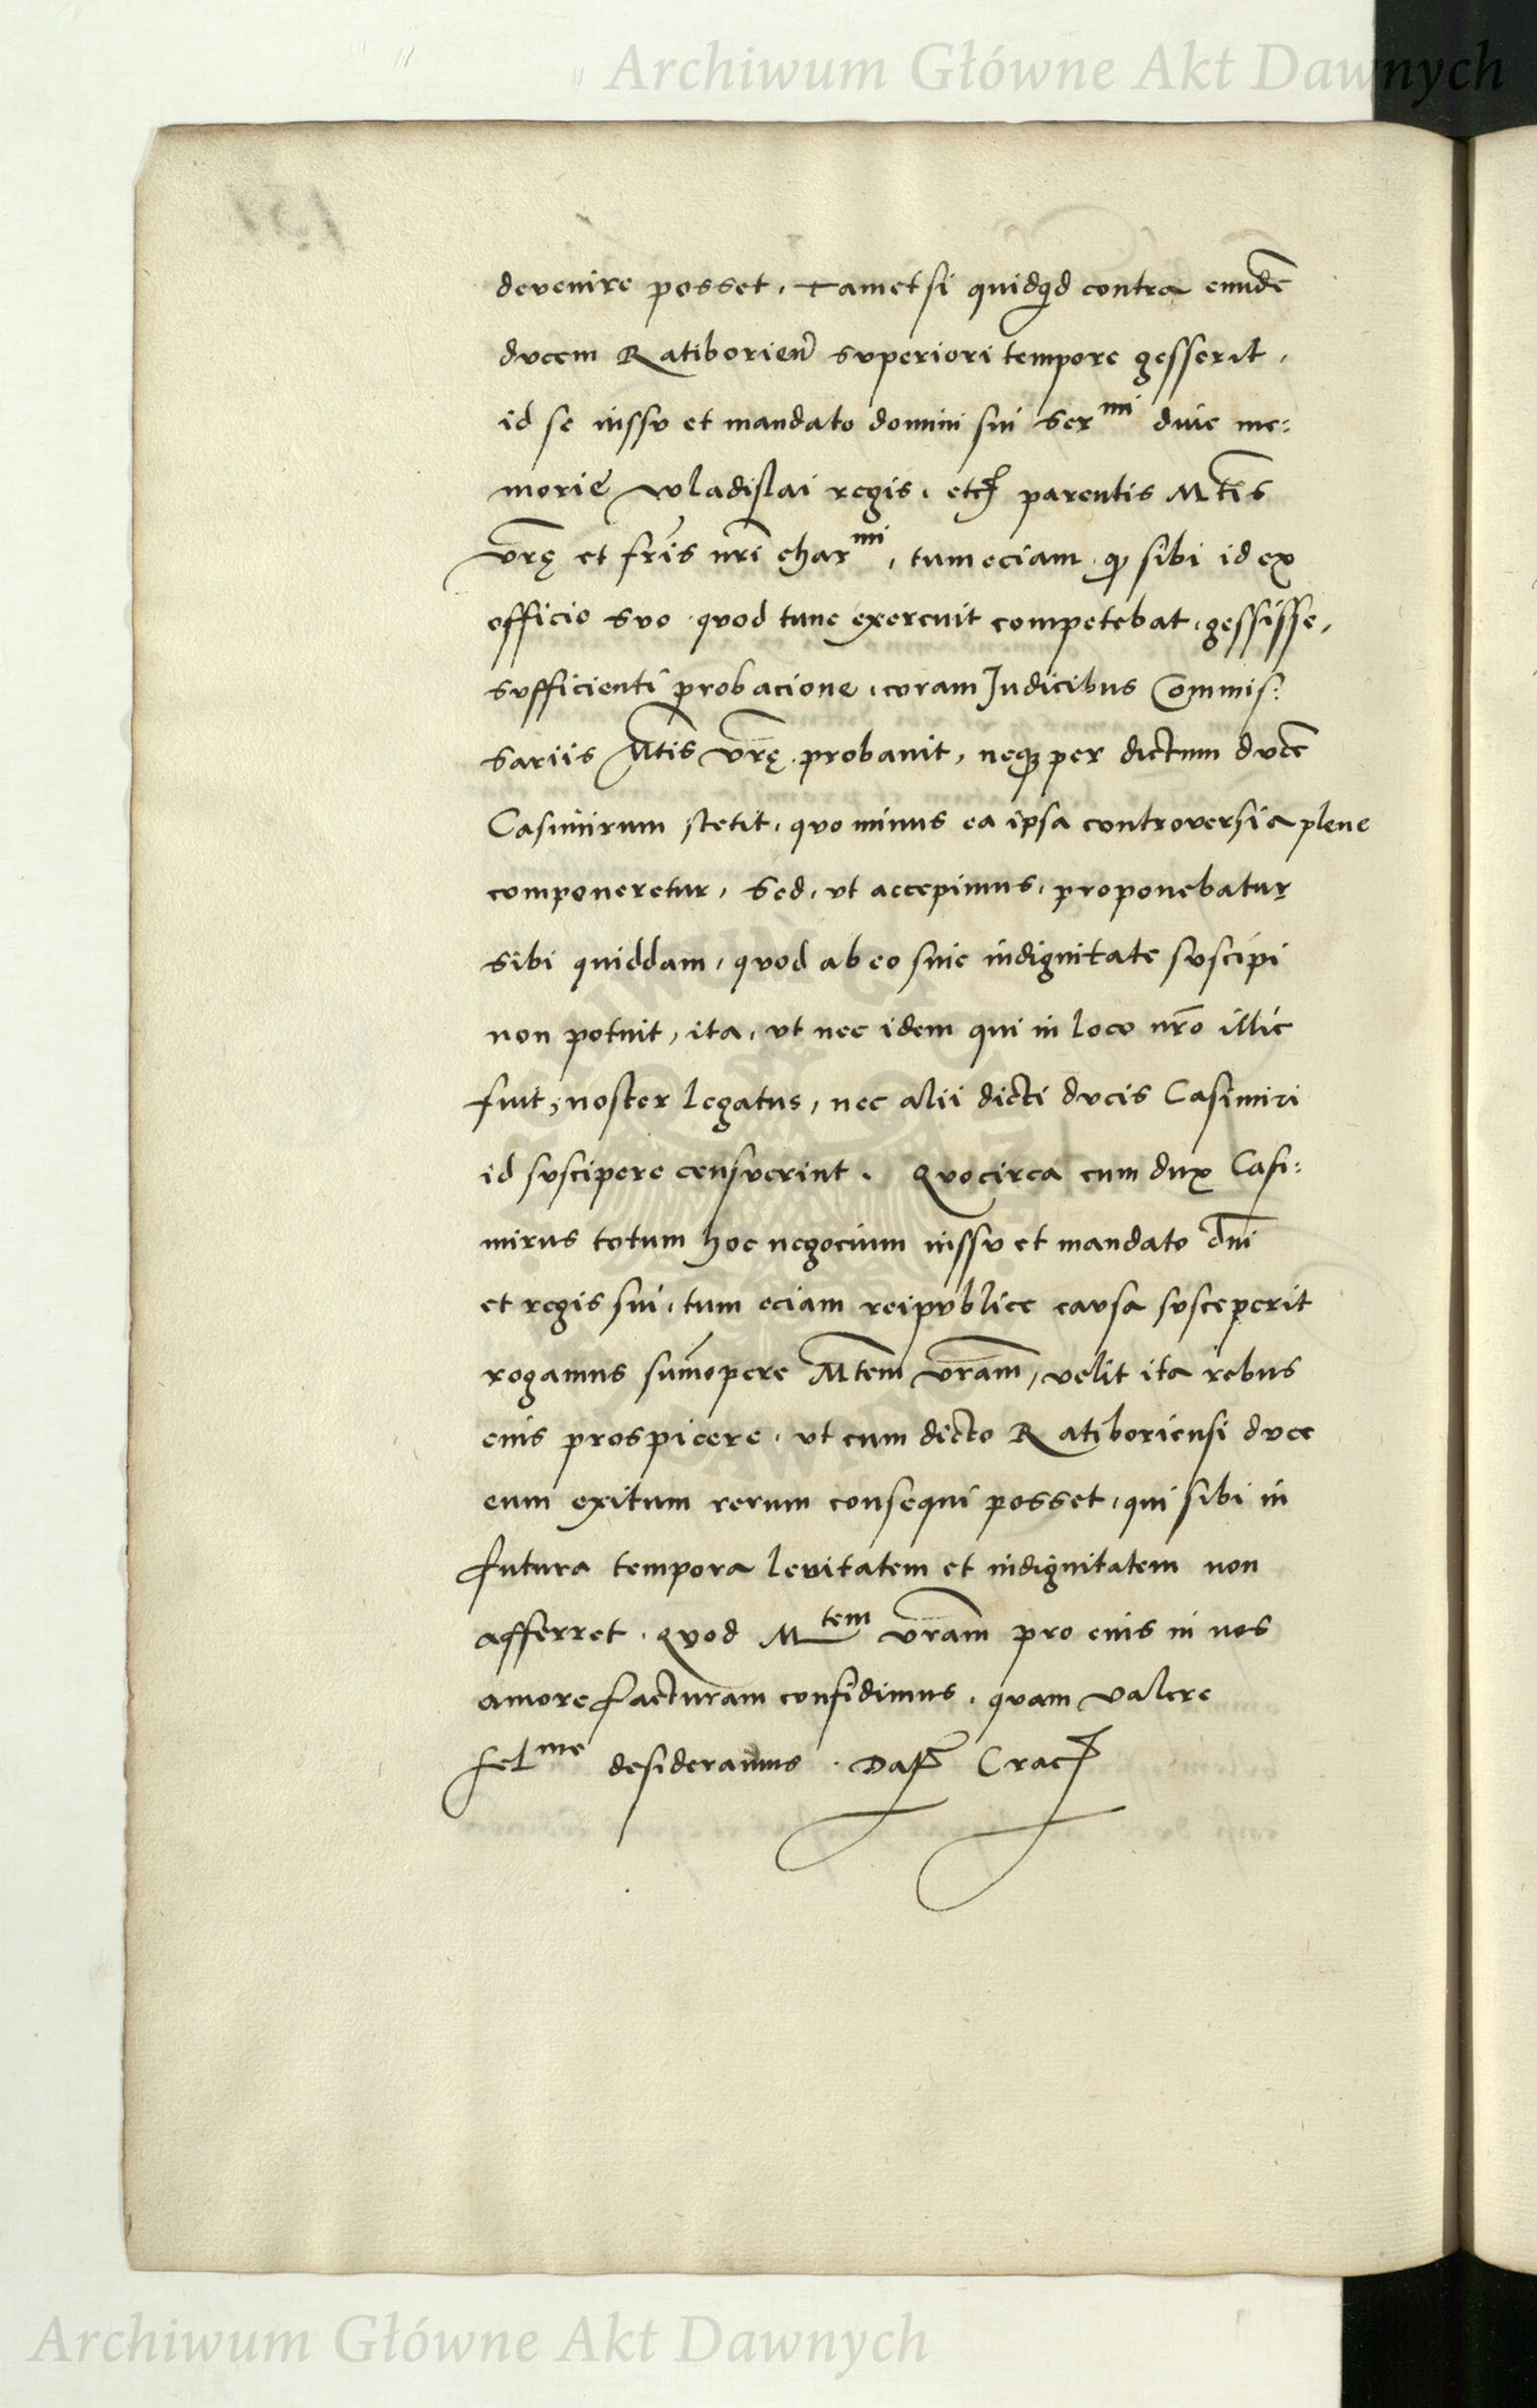 Archiwum Główne Akt Dawnych
devenire posset, tametsi quidqd contra eundē
ducem Ratiborien̄ superiori tempore gesserit,
id se iussu et mandato domini sui Ser^mi diue me:
morie Wladislai regis. etc parentis M̄tis
vr̄ę et fr̄is nr̄i char^mi, tum eciam qꝫ sibi id ex
officio suo quod tunc exercuit competebat, gessisse,
sufficienti probacione, coram Judicibus Commis:
sariis M̄tis vr̄ę probauit, neqꝫ per dictum ducē
Casimirum stetit, quo minus ea ipsa controversia plene
componeretur, Sed, vt accepimus, proponebatur
sibi quiddam, quod ab eo sine indignitate suscipi
non potuit, ita, vt nec idem qui in loco nr̄o illic
fuit, noster legatus, nec alii dicti ducis Casimiri
id suscipere censuerint. Quocirca cum dux Casi:
mirus totum hoc negocium iussu et mandato dn̄i
et regis sui, tum eciam reipublice causa susceperit
rogamus sum̄opere M̄tem vr̄am, velit ita rebus
eius prospicere, vt cum dicto Ratiboriensi duce
eum exitum rerum consequi posset, qui sibi in
futura tempora levitatem et indignitatem non
afferret. Quod M^tem vr̄am pro eius in nos
amore facturam confidimus, quam valere
fel^me desideramus. Dat Crac
Archiwum Główne Akt Dawnych